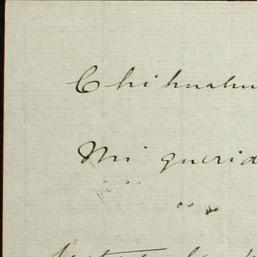 Chihuahu
Mi querid